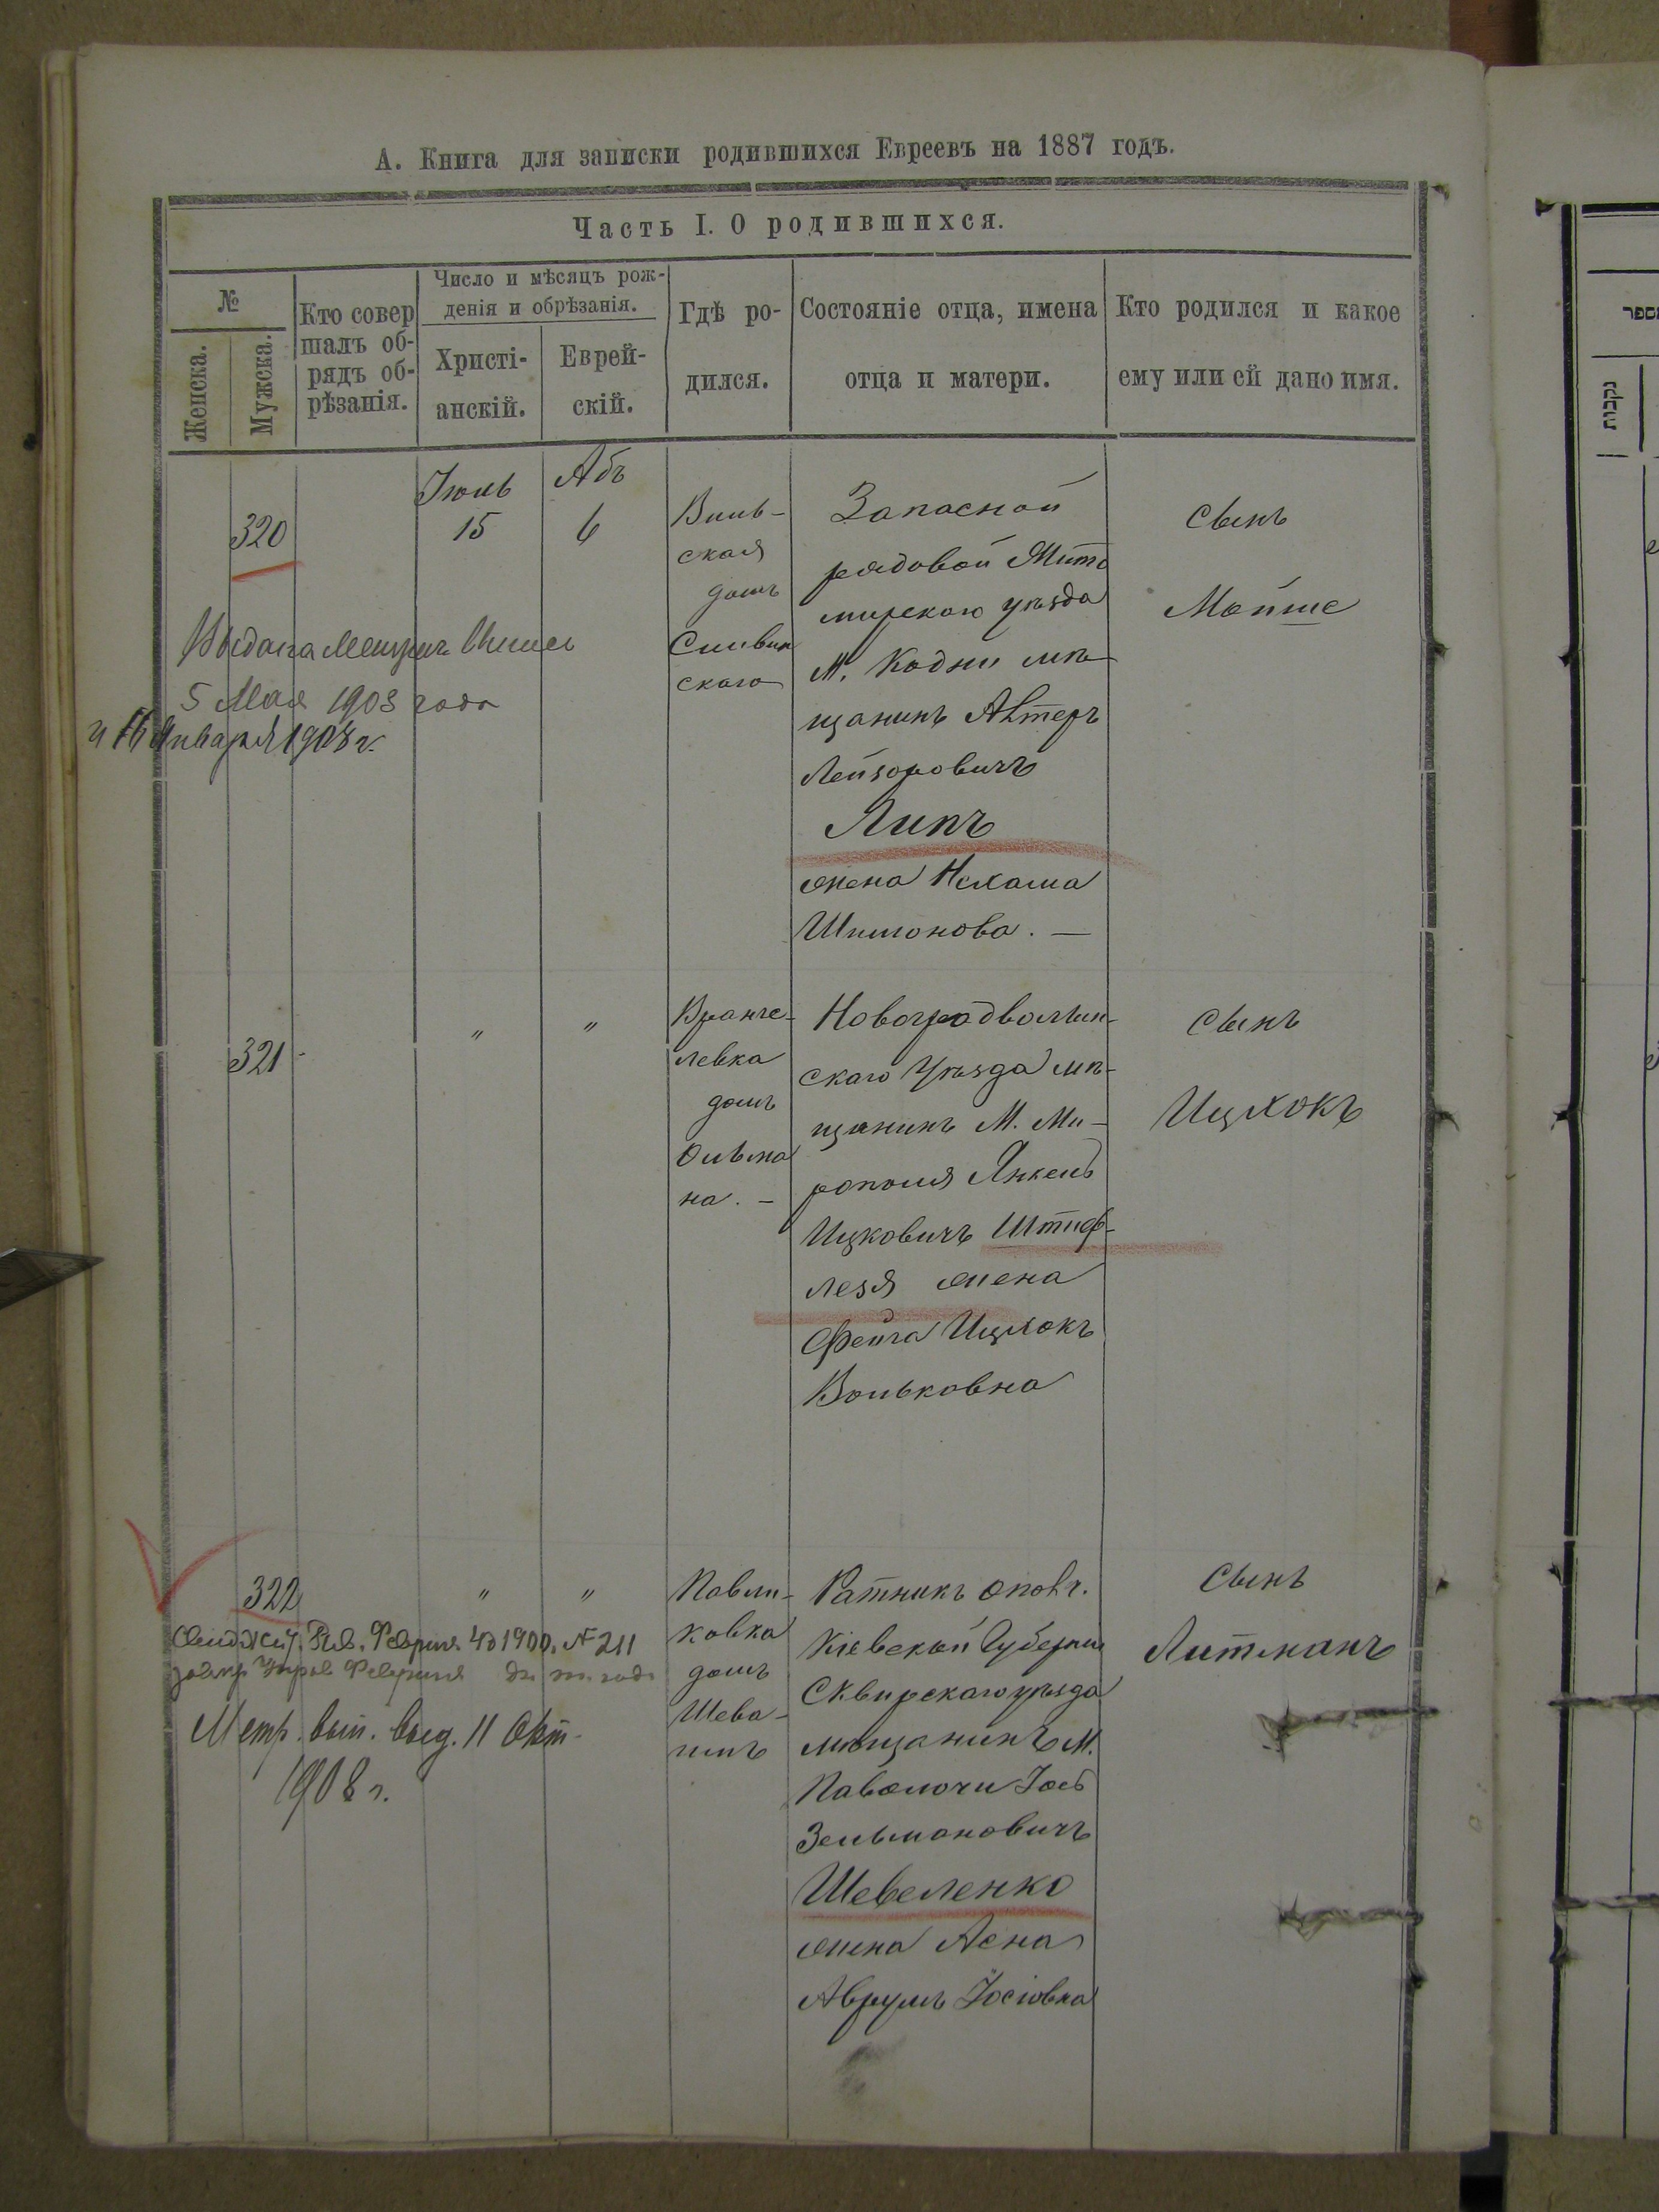 А. Книга для записки родившихся Евреевъ на 1887 годъ.
Часть I. О родившихся.
№
Женска.
Мужска.
Кто совер
шалъ об-
рядъ об-
рѣзанія.
Число и мѣсяцъ рож-
денія и обрѣзанія.
Христі-
анскій.
Еврей-
скій.
Гдѣ ро-
дился.
Состояніе отца, имена
отца и матери.
Кто родился и какое
ему или ей дано имя.
320
Іюль
15
Абъ
6
Виль-
ская
домъ
Сливин
скаго
Запасной
рядовой Жито
мирскаго уѣзда
М. Кодни мѣ-
щанинъ Алтеръ
Лейзоровичъ
Липъ
жена Нехама
Шимонова. —
Сынъ
Мойше
Выдана
5 Мая 1903 года
и 16 Января 1908 г.
321
"
"
Вранге-
левка
домъ
Ольма
на. –
Новоградволын-
скаго Уѣзда мѣ-
щанинъ М. Ми-
рополя Янкель
Ицковичъ Штиф-
лезя жена
Фейга Ицхокъ
Вольковна
Сынъ
Ицхокъ
322
"
"
Павли-
ковка
домъ
Шева-
Ратникъ ополч.
Кіевской Губерніи
Сквирскаго уѣзда
мѣщанинъ М.
Паволочи Іось
Зельмановичъ
Шевеленко
жена Асна
Аврумъ Іосіовна
Сынъ
Литманъ
Февраля 1900. № 211
Февраля
Метр. вып. выд. 11 Окт.
1908 г.
נקבות